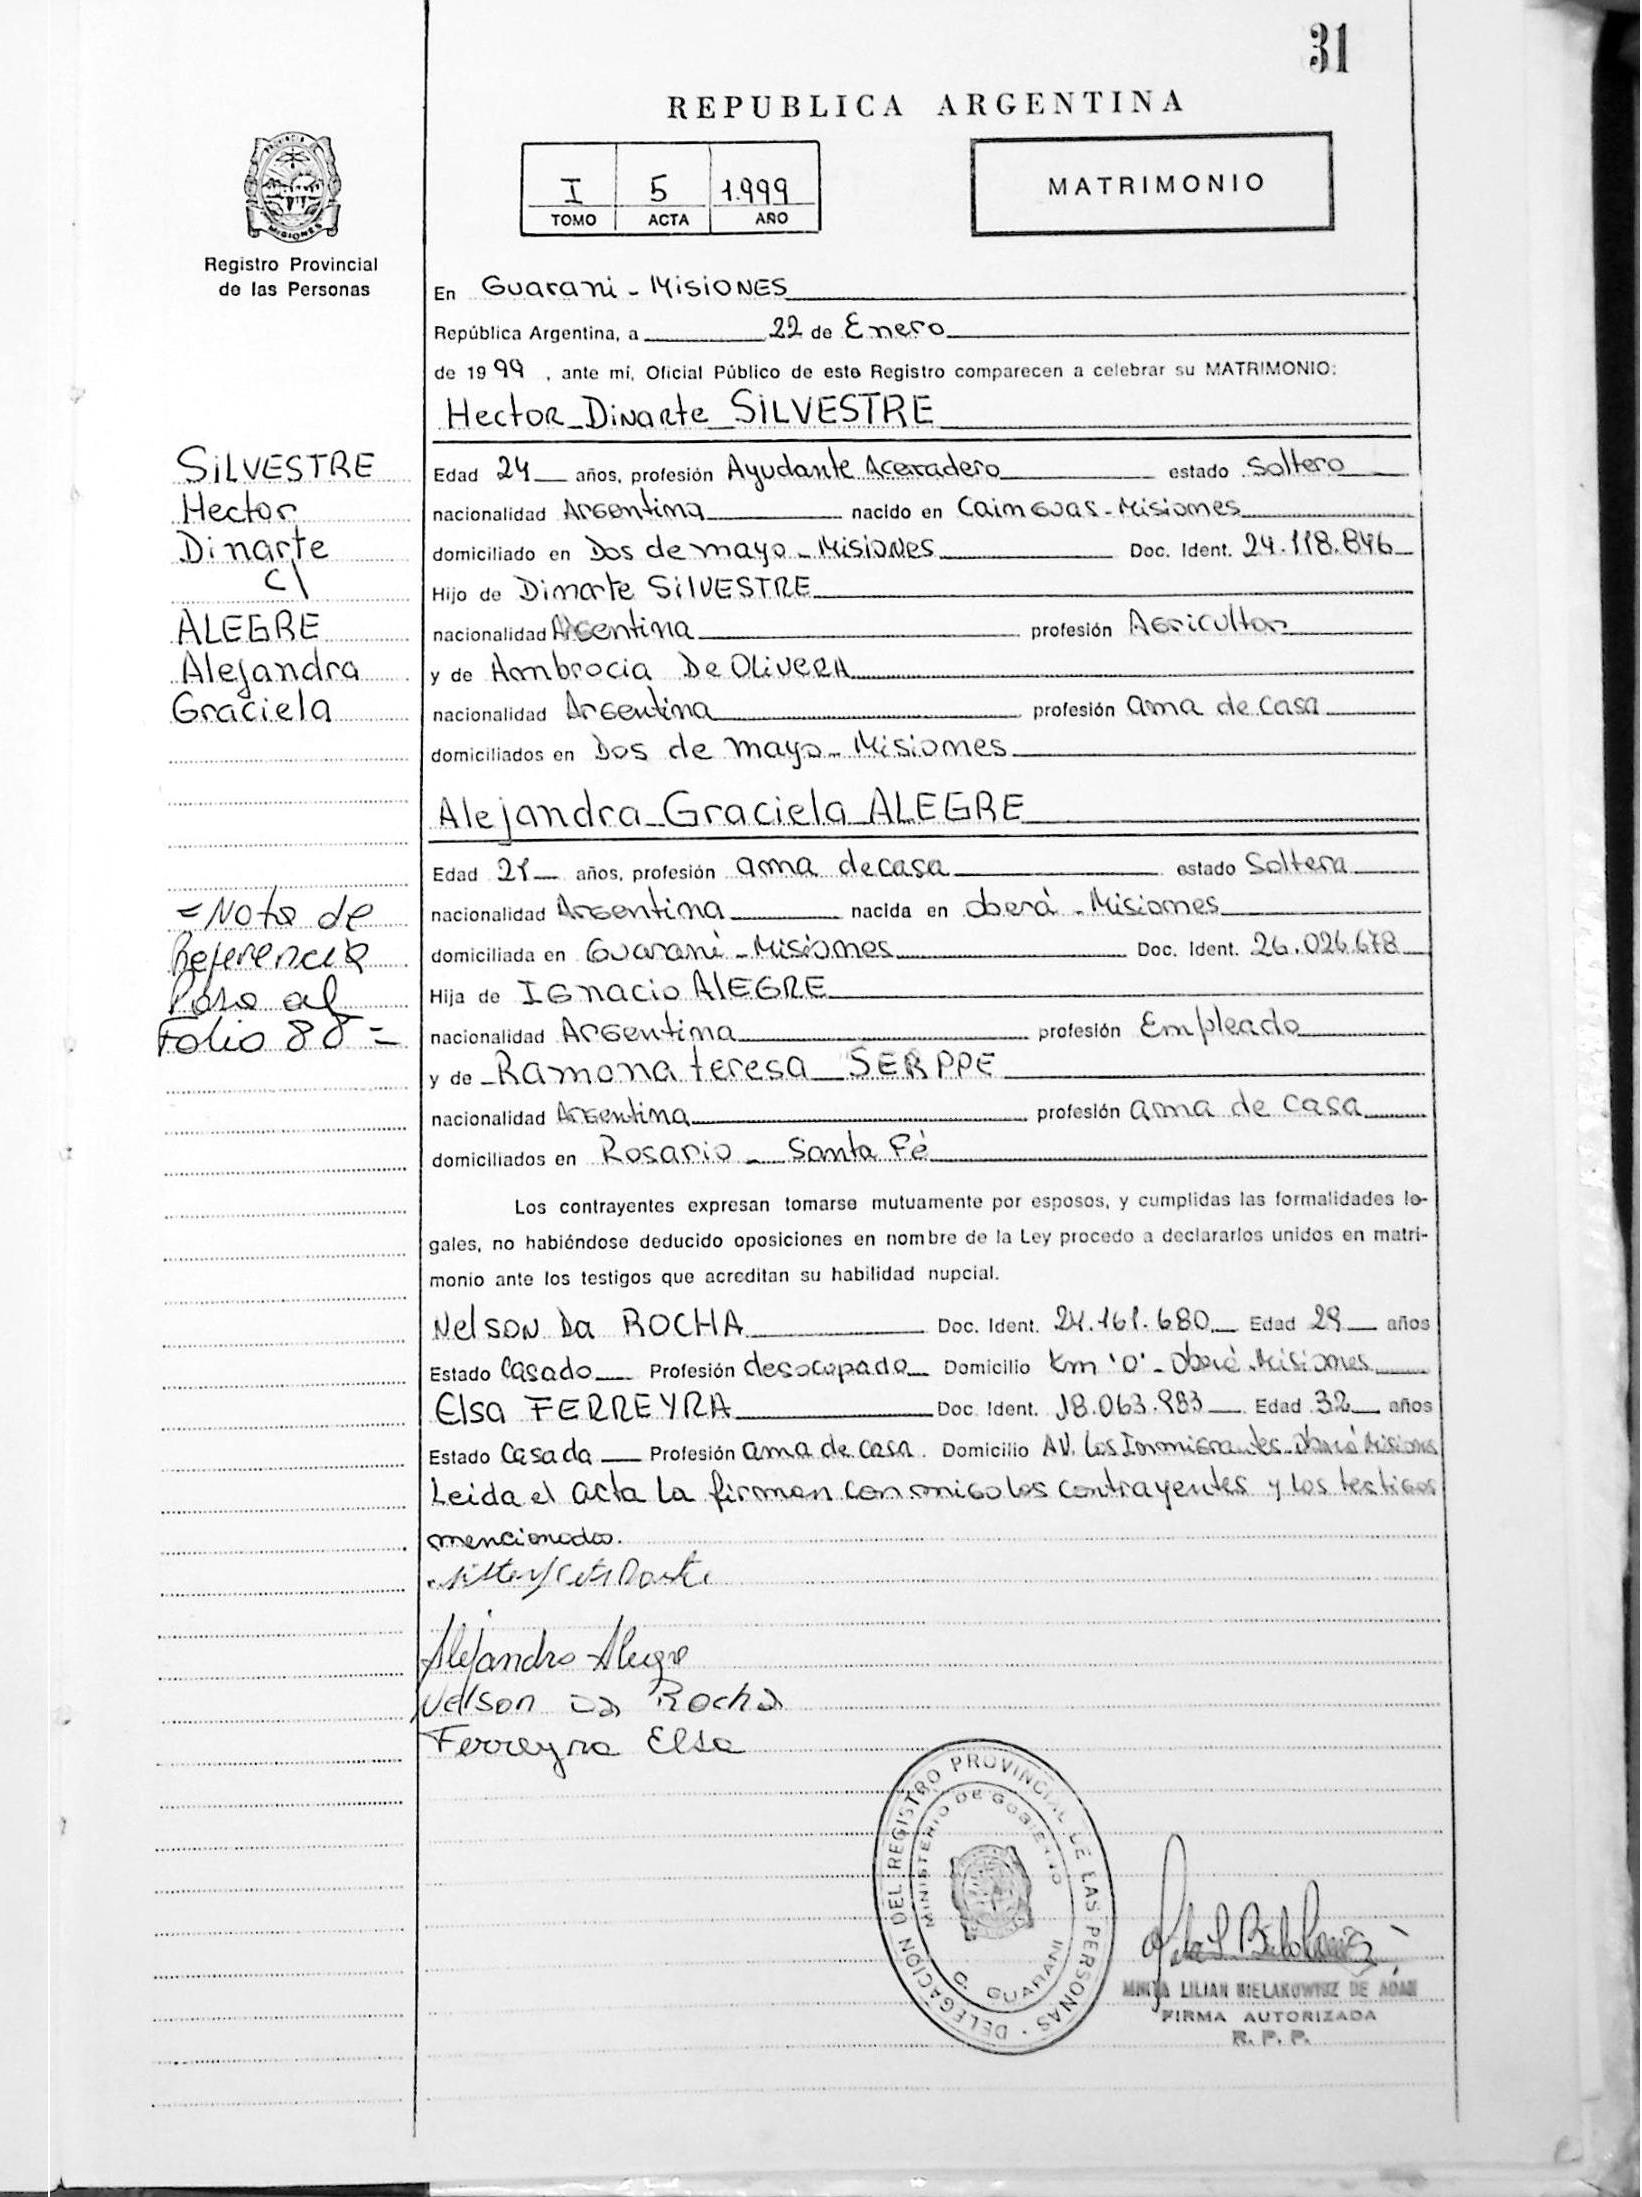 31
REPUBLICA ARGENTINA
I 5 1.999
TOMO ACTA AÑO
MATRIMONIO
PROVINCIA DE
MISIONES
Registro Provincial
de las Personas
En Guarani - Misiones
República Argentina, a 22 de Enero
de 1999, ante mí, Oficial Público de este Registro comparecen a celebrar su MATRIMONIO:
Hector Dinarte SILVESTRE
SILVESTRE
Hector
Dinarte
c/
ALEGRE
Alejandra
Graciela
Edad 24 años, profesión Ayudante Acerradero estado Soltero
nacionalidad Argentina nacido en Cainguas - Misiones
domiciliado en Dos de mayo - Misiones Doc. Ident. 24.118.846
Hijo de Dinarte SILVESTRE
nacionalidad Argentina profesión Agricultor
y de Ambrocia De OliveRA
nacionalidad Argentina profesión ama de casa
domiciliados en Dos de mayo - Misiones
Alejandra Graciela ALEGRE
Edad 21 años, profesión ama de casa estado Soltera
nacionalidad Argentina nacida en oberá - Misiones
domiciliada en Guaraní - Misiones Doc. Ident. 26.026.678
Hija de Ignacio AlEGRE
nacionalidad Argentina profesión Empleado
y de Ramona teresa SERPPE
nacionalidad Argentina profesión ama de casa
domiciliados en Rosario - Santa Fé
= Nota de
Referencia
Pasa al
Folio 88 =
Los contrayentes expresan tomarse mutuamente por esposos, y cumplidas las formalidades le-
gales, no habiéndose deducido oposiciones en nombre de la Ley procedo a declararlos unidos en matri-
monio ante los testigos que acreditan su habilidad nupcial.
Nelson Da ROCHA Doc. Ident. 24.161.680 Edad 29 años
Estado Casado Profesión desocupado Domicilio Km '0' - Oberá Misiones
Elsa FERREYRA Doc. Ident. 18.063.983 Edad 32 años
Estado Casada Profesión ama de casa. Domicilio AV. Los Inmigrantes - Oberá Misiones
Leida el acta la firman conmigo los contrayentes y los testigos
mencionados.
Alejandra Alegre
Nelson Da Rocha
Ferreyra Elsa
DELEGACION DEL REGISTRO PROVINCIAL DE LAS PERSONAS
MINISTERIO DE GOBIERNO
GUARANI
LILIAN BIELAKOWICZ DE ADAM
FIRMA AUTORIZADA
R. P. P.